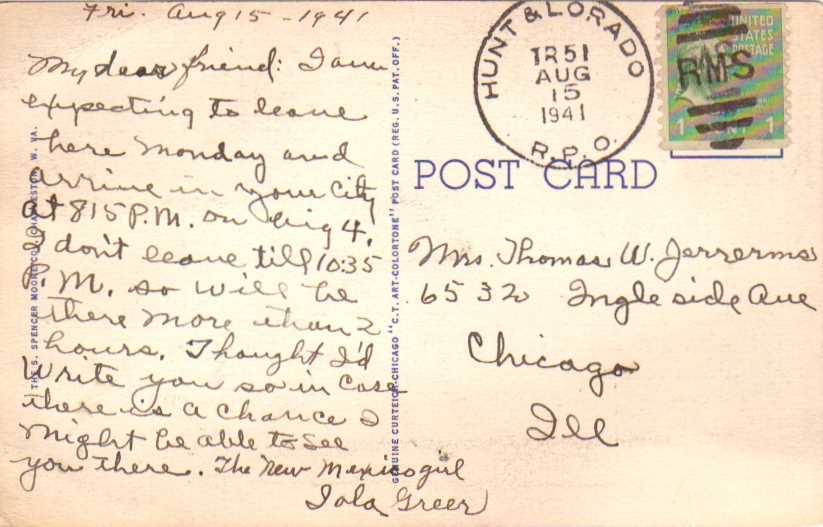 Fri. Aug 15 - 1941
My dear friend: I am
expecting to leave
here Monday and
arrive in your city
at 815 P.M. on Big 4.
I don't leave till 10:35
P.M. so will be
there more than 2
hours. Thought I'd
write you so in case
there is a chance I
might be able to see
you there. The New Mexico girl
Iola Greer
THE S. SPENCER MOORE CO., CHARLESTON, W. VA.
GENUINE CURTEICH-CHICAGO "C.T. ART-COLORTONE" POST CARD (REG. U.S. PAT. OFF.)
HUNT & LORADO
TR 51
AUG
15
1941
R.P.O.
UNITED
STATES
POSTAGE
RMS
1 1
POST CARD
Mrs. Thomas W. Jerrems
6532 Ingleside Ave
Chicago
Ill